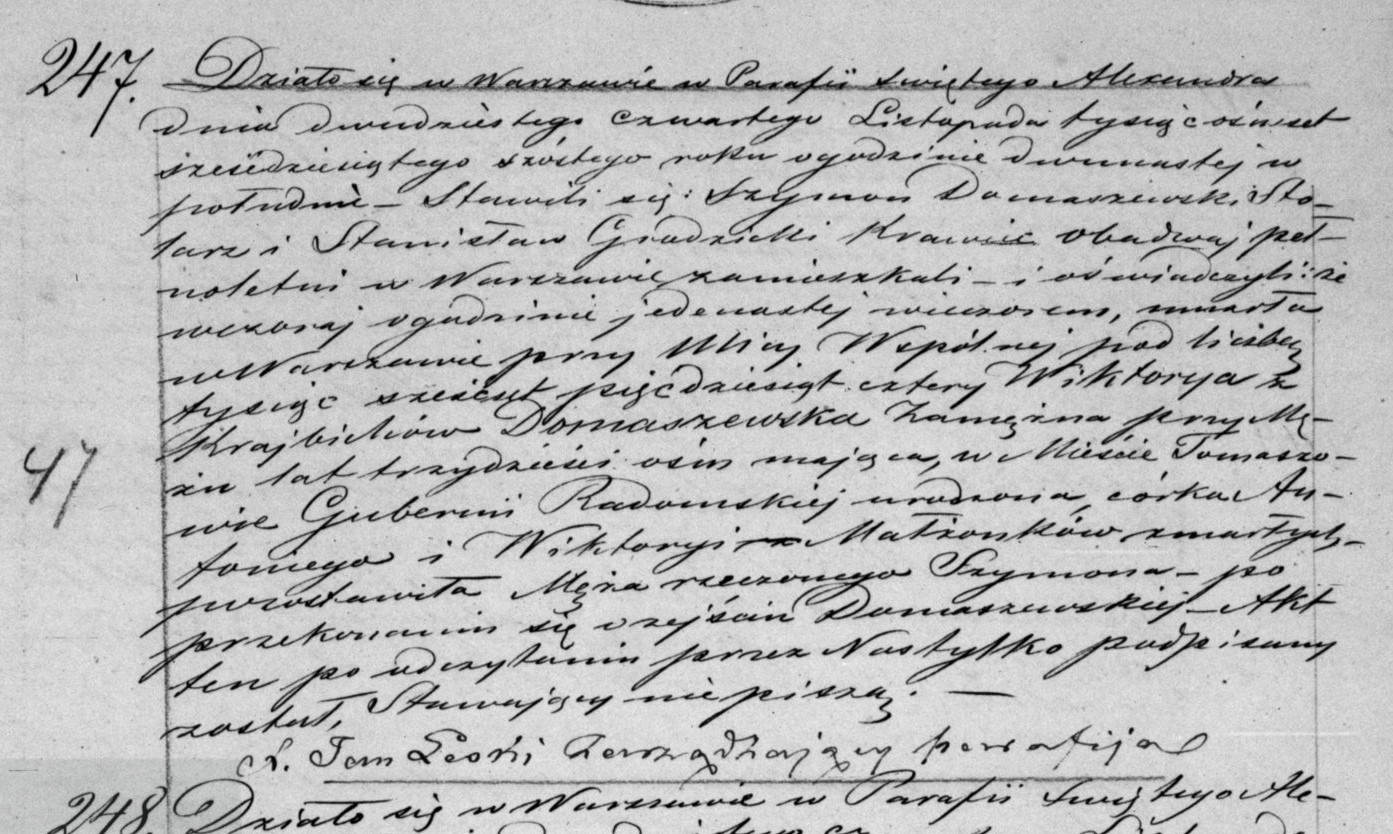 247. Działo się w Warszawie w Parafii Świętego Alexandra
dnia dwudziestego czwartego Listopada tysiąc ośmset
sześćdziesiątego szóstego roku o godzinie dwunastej w
południe – Stawili się: Szymon Domaszewski Sto-
larz i Stanisław Grodzicki Krawiec obadwaj peł-
noletni w Warszawie zamieszkali – i oświadczyli: że
wczoraj o godzinie jedenastej wieczorem, umarła
w Warszawie przy Ulicy Wspólnej pod liczbą
tysiąc sześćset pięćdziesiąt cztery Wiktorya z
Krajbichów Domaszewska Zamężna przy Mę-
żu lat trzydzieści ośm mająca, w Mieście Tomaszo-
47
wie Gubernii Radomskiej urodzona, córka An-
toniego i Wiktoryi Małżonków zmarłych, –
pozostawiła Męża rzeczonego Szymona – po
przekonaniu się o zejściu Domaszewskiej – Akt
ten po odczytaniu przez Nas tylko podpisany
został, Stawający nie piszą. —
X. Jan Leski Zarządzający parafiją
248. Działo się w Warszawie w Parafii Świętego Ale-